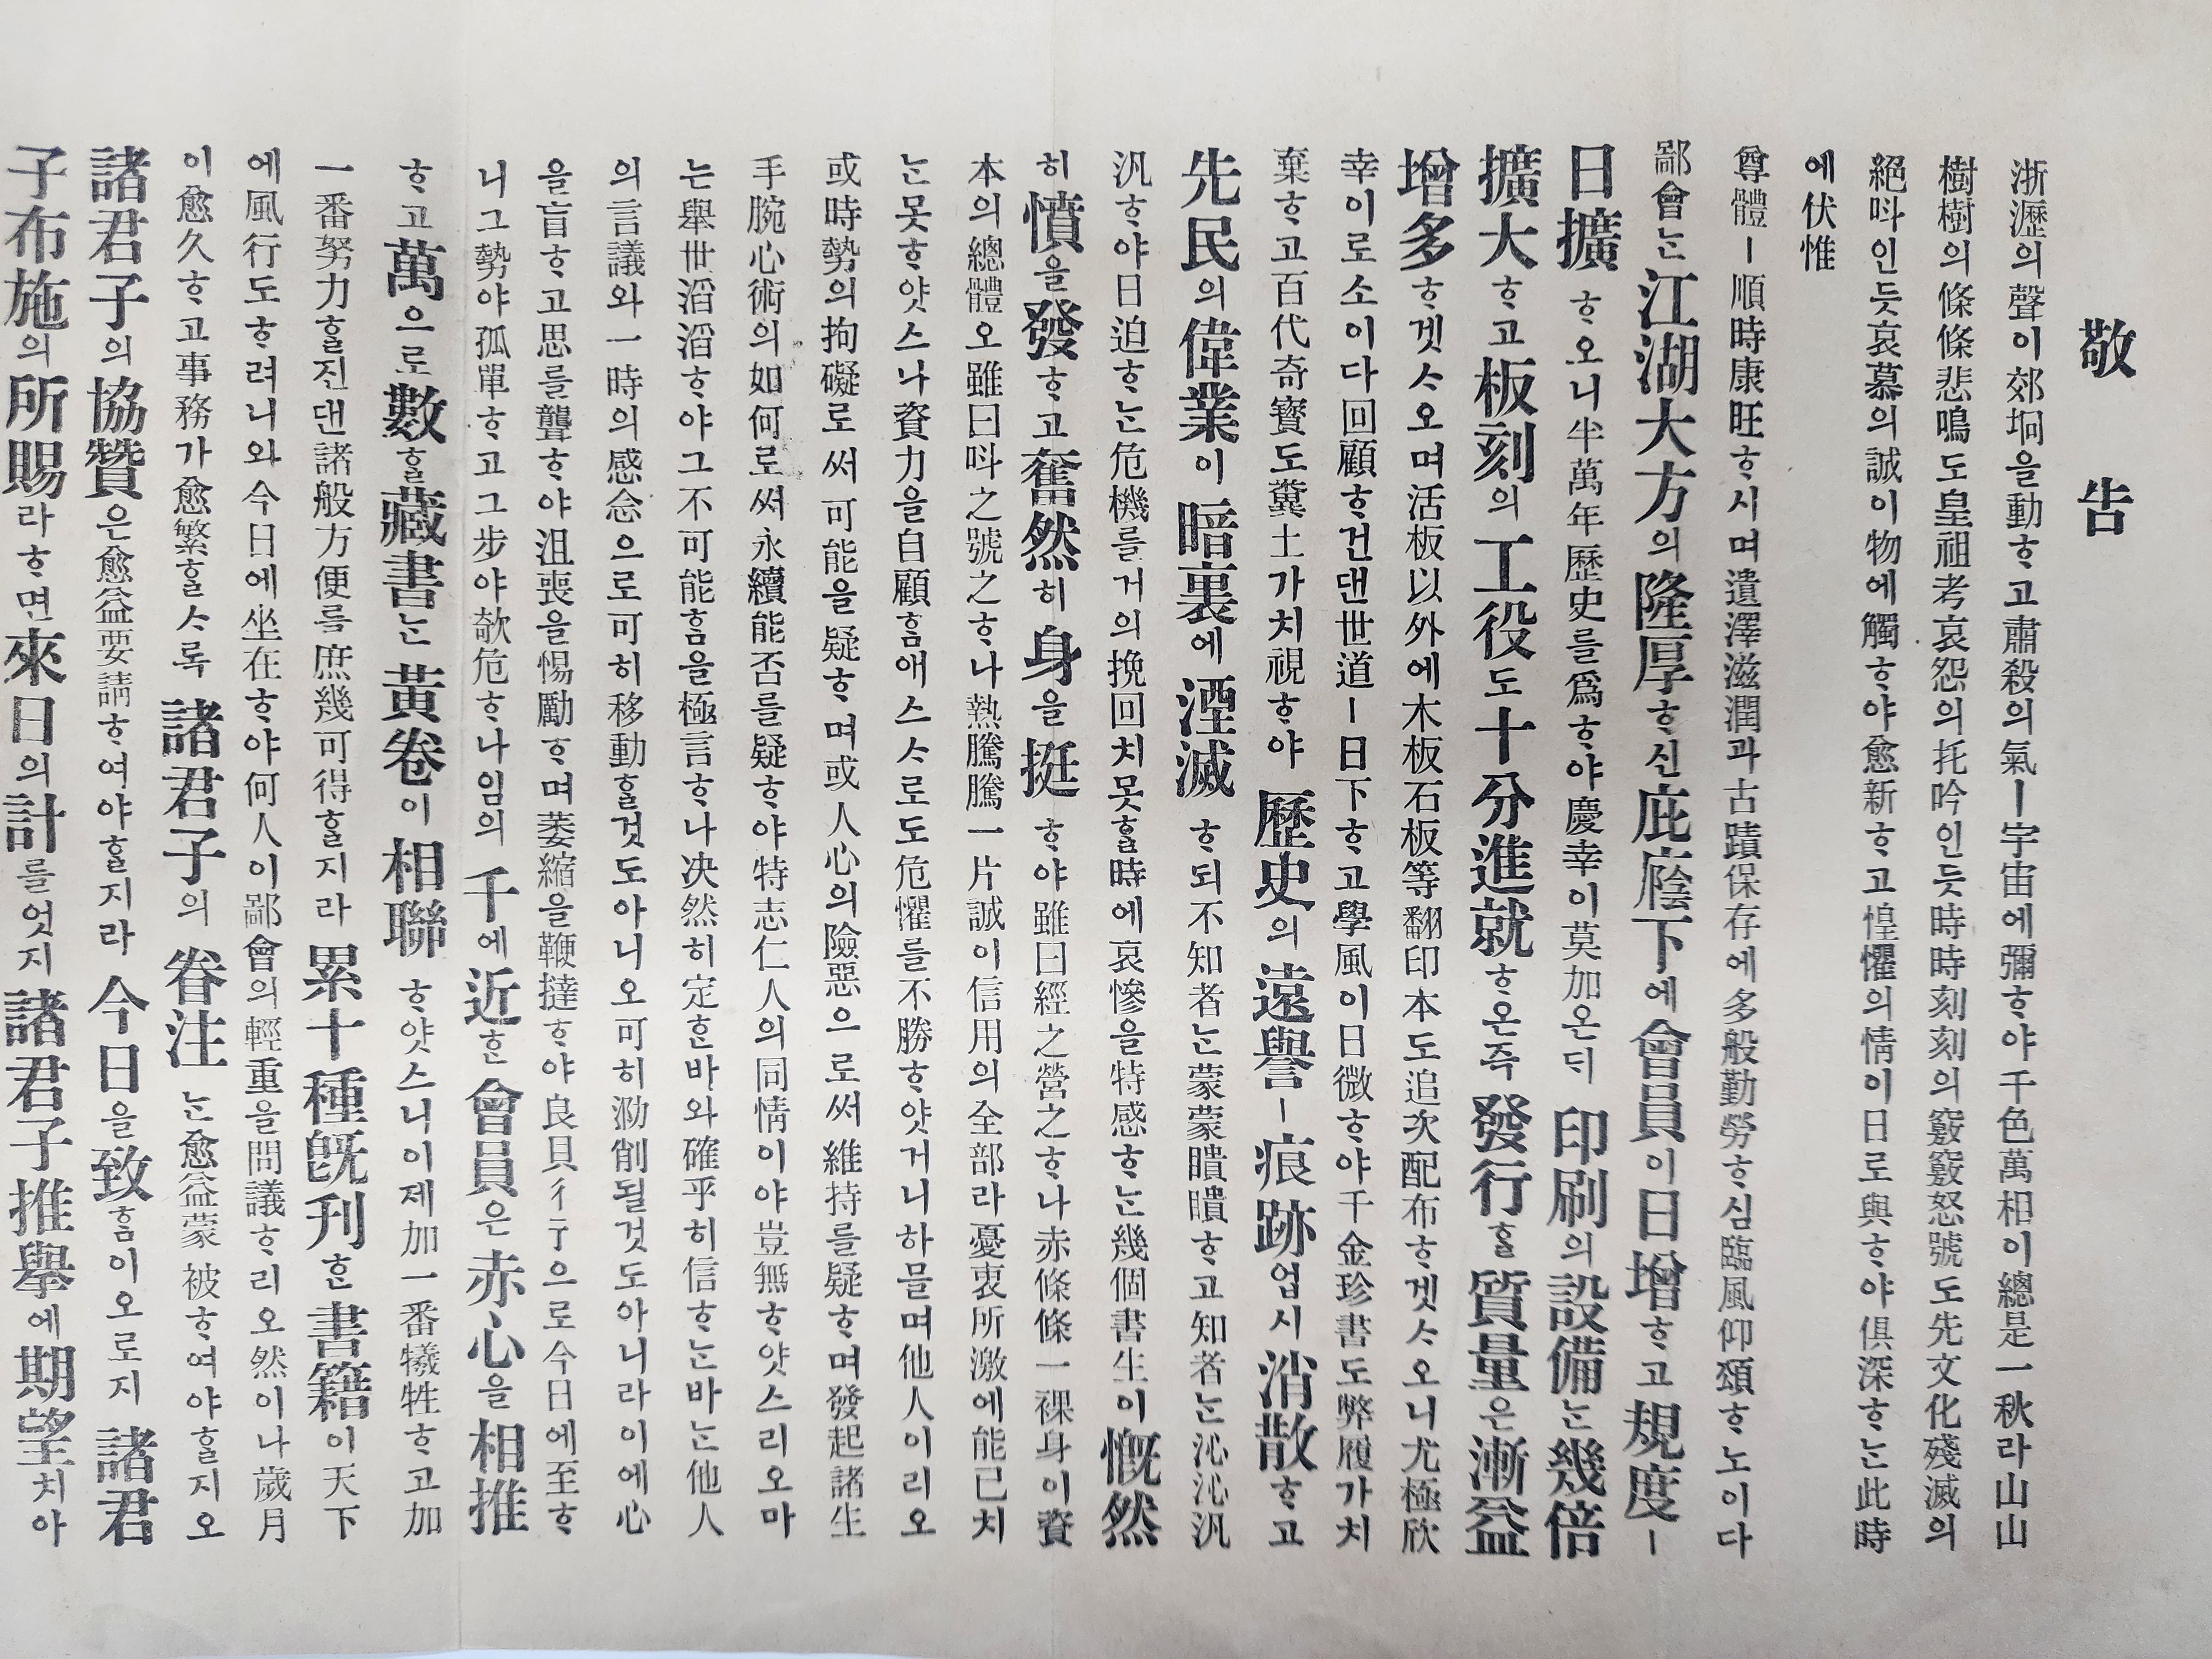 敬告
浙瀝의聲이郊坰을動ᄒᆞ고肅殺의氣ㅣ宇宙에彌ᄒᆞ야千色萬相이總是一秋라山山
樹樹의條條悲鳴도皇祖考哀怨의托吟인듯時時刻刻의竅竅怒號도先文化殘滅의
絕呌인듯哀慕의誠이物에觸ᄒᆞ야愈新ᄒᆞ고惶懼의情이日로與ᄒᆞ야俱深ᄒᆞᄂᆞᆫ此時
에伏惟
尊體ㅣ順時康旺ᄒᆞ시며遺澤滋潤과古蹟保存에多般勤勞ᄒᆞ심臨風仰頌ᄒᆞ노이다
鄙會ᄂᆞᆫ江湖大方의隆厚ᄒᆞ신庇廕下에會員이日增ᄒᆞ고規度ㅣ
日擴ᄒᆞ오니半萬年歷史를爲ᄒᆞ야慶幸이莫加온ᄃᆡ印刷의設備ᄂᆞᆫ幾倍
擴大ᄒᆞ고板刻의工役도十分進就ᄒᆞ온즉發行ᄒᆞᆯ質量은漸益
增多ᄒᆞ겟ᄉᆞ오며活板以外에木板石板等翻印本도追次配布ᄒᆞ겟ᄉᆞ오니尤極欣
幸이로소이다回顧ᄒᆞ건댄世道ㅣ日下ᄒᆞ고學風이日微ᄒᆞ야千金珍書도弊履가치
棄ᄒᆞ고百代奇寶도糞土가치視ᄒᆞ야歷史의遠譽ㅣ痕跡업시消散ᄒᆞ고
先民의偉業이暗裏에湮滅ᄒᆞ되不知者ᄂᆞᆫ蒙蒙瞶瞶ᄒᆞ고知者ᄂᆞᆫ沁沁汎
汎ᄒᆞ야日迫ᄒᆞᄂᆞᆫ危機를거의挽回치못ᄒᆞᆯ時에哀慘을特感ᄒᆞᄂᆞᆫ幾個書生이慨然
히憤을發ᄒᆞ고奮然히身을挺ᄒᆞ야雖曰經之營之ᄒᆞ나赤條條一裸身이資
本의總體오雖曰呌之號之ᄒᆞ나熱騰騰一片誠이信用의全部라憂衷所激에能已치
ᄂᆞᆫ못ᄒᆞ얏스나資力을自顧ᄒᆞᆷ애스ᄉᆞ로도危懼를不勝ᄒᆞ얏거니하믈며他人이리오
或時勢의拘礙로써可能을疑ᄒᆞ며或人心의險惡으로써維持를疑ᄒᆞ며發起諸生
手腕心術의如何로써永續能否를疑ᄒᆞ야特志仁人의同情이야豈無ᄒᆞ얏스리오마
는擧世滔滔ᄒᆞ야그不可能ᄒᆞᆷ을極言ᄒᆞ나決然히定ᄒᆞᆫ바와確乎히信ᄒᆞᄂᆞᆫ바ᄂᆞᆫ他人
의言議와一時의感念으로可히移動ᄒᆞᆯ것도아니오可히泐削될것도아니라이에心
을盲ᄒᆞ고思를聾ᄒᆞ야沮喪을惕勵ᄒᆞ며萎縮을鞭撻ᄒᆞ야良貝彳亍으로今日에至ᄒᆞ
니그勢야孤單ᄒᆞ고그步야欹危ᄒᆞ나임의千에近ᄒᆞᆫ會員은赤心을相推
ᄒᆞ고萬으로數ᄒᆞᆯ藏書ᄂᆞᆫ黃卷이相聯ᄒᆞ얏스니이제加一番犧牲ᄒᆞ고加
一番努力ᄒᆞᆯ진댄諸般方便를庶幾可得ᄒᆞᆯ지라累十種旣刊ᄒᆞᆫ書籍이天下
에風行도ᄒᆞ려니와今日에坐在ᄒᆞ야何人이鄙會의輕重을問議ᄒᆞ리오然이나歲月
이愈久ᄒᆞ고事務가愈繁ᄒᆞᆯᄉᆞ록諸君子의眷注ᄂᆞᆫ愈益蒙被ᄒᆞ여야ᄒᆞᆯ지오
諸君子의協贊은愈益要請ᄒᆞ여야ᄒᆞᆯ지라今日을致ᄒᆞᆷ이오로지諸君
子布施의所賜라ᄒᆞ면來日의計를엇지諸君子推擧에期望치아